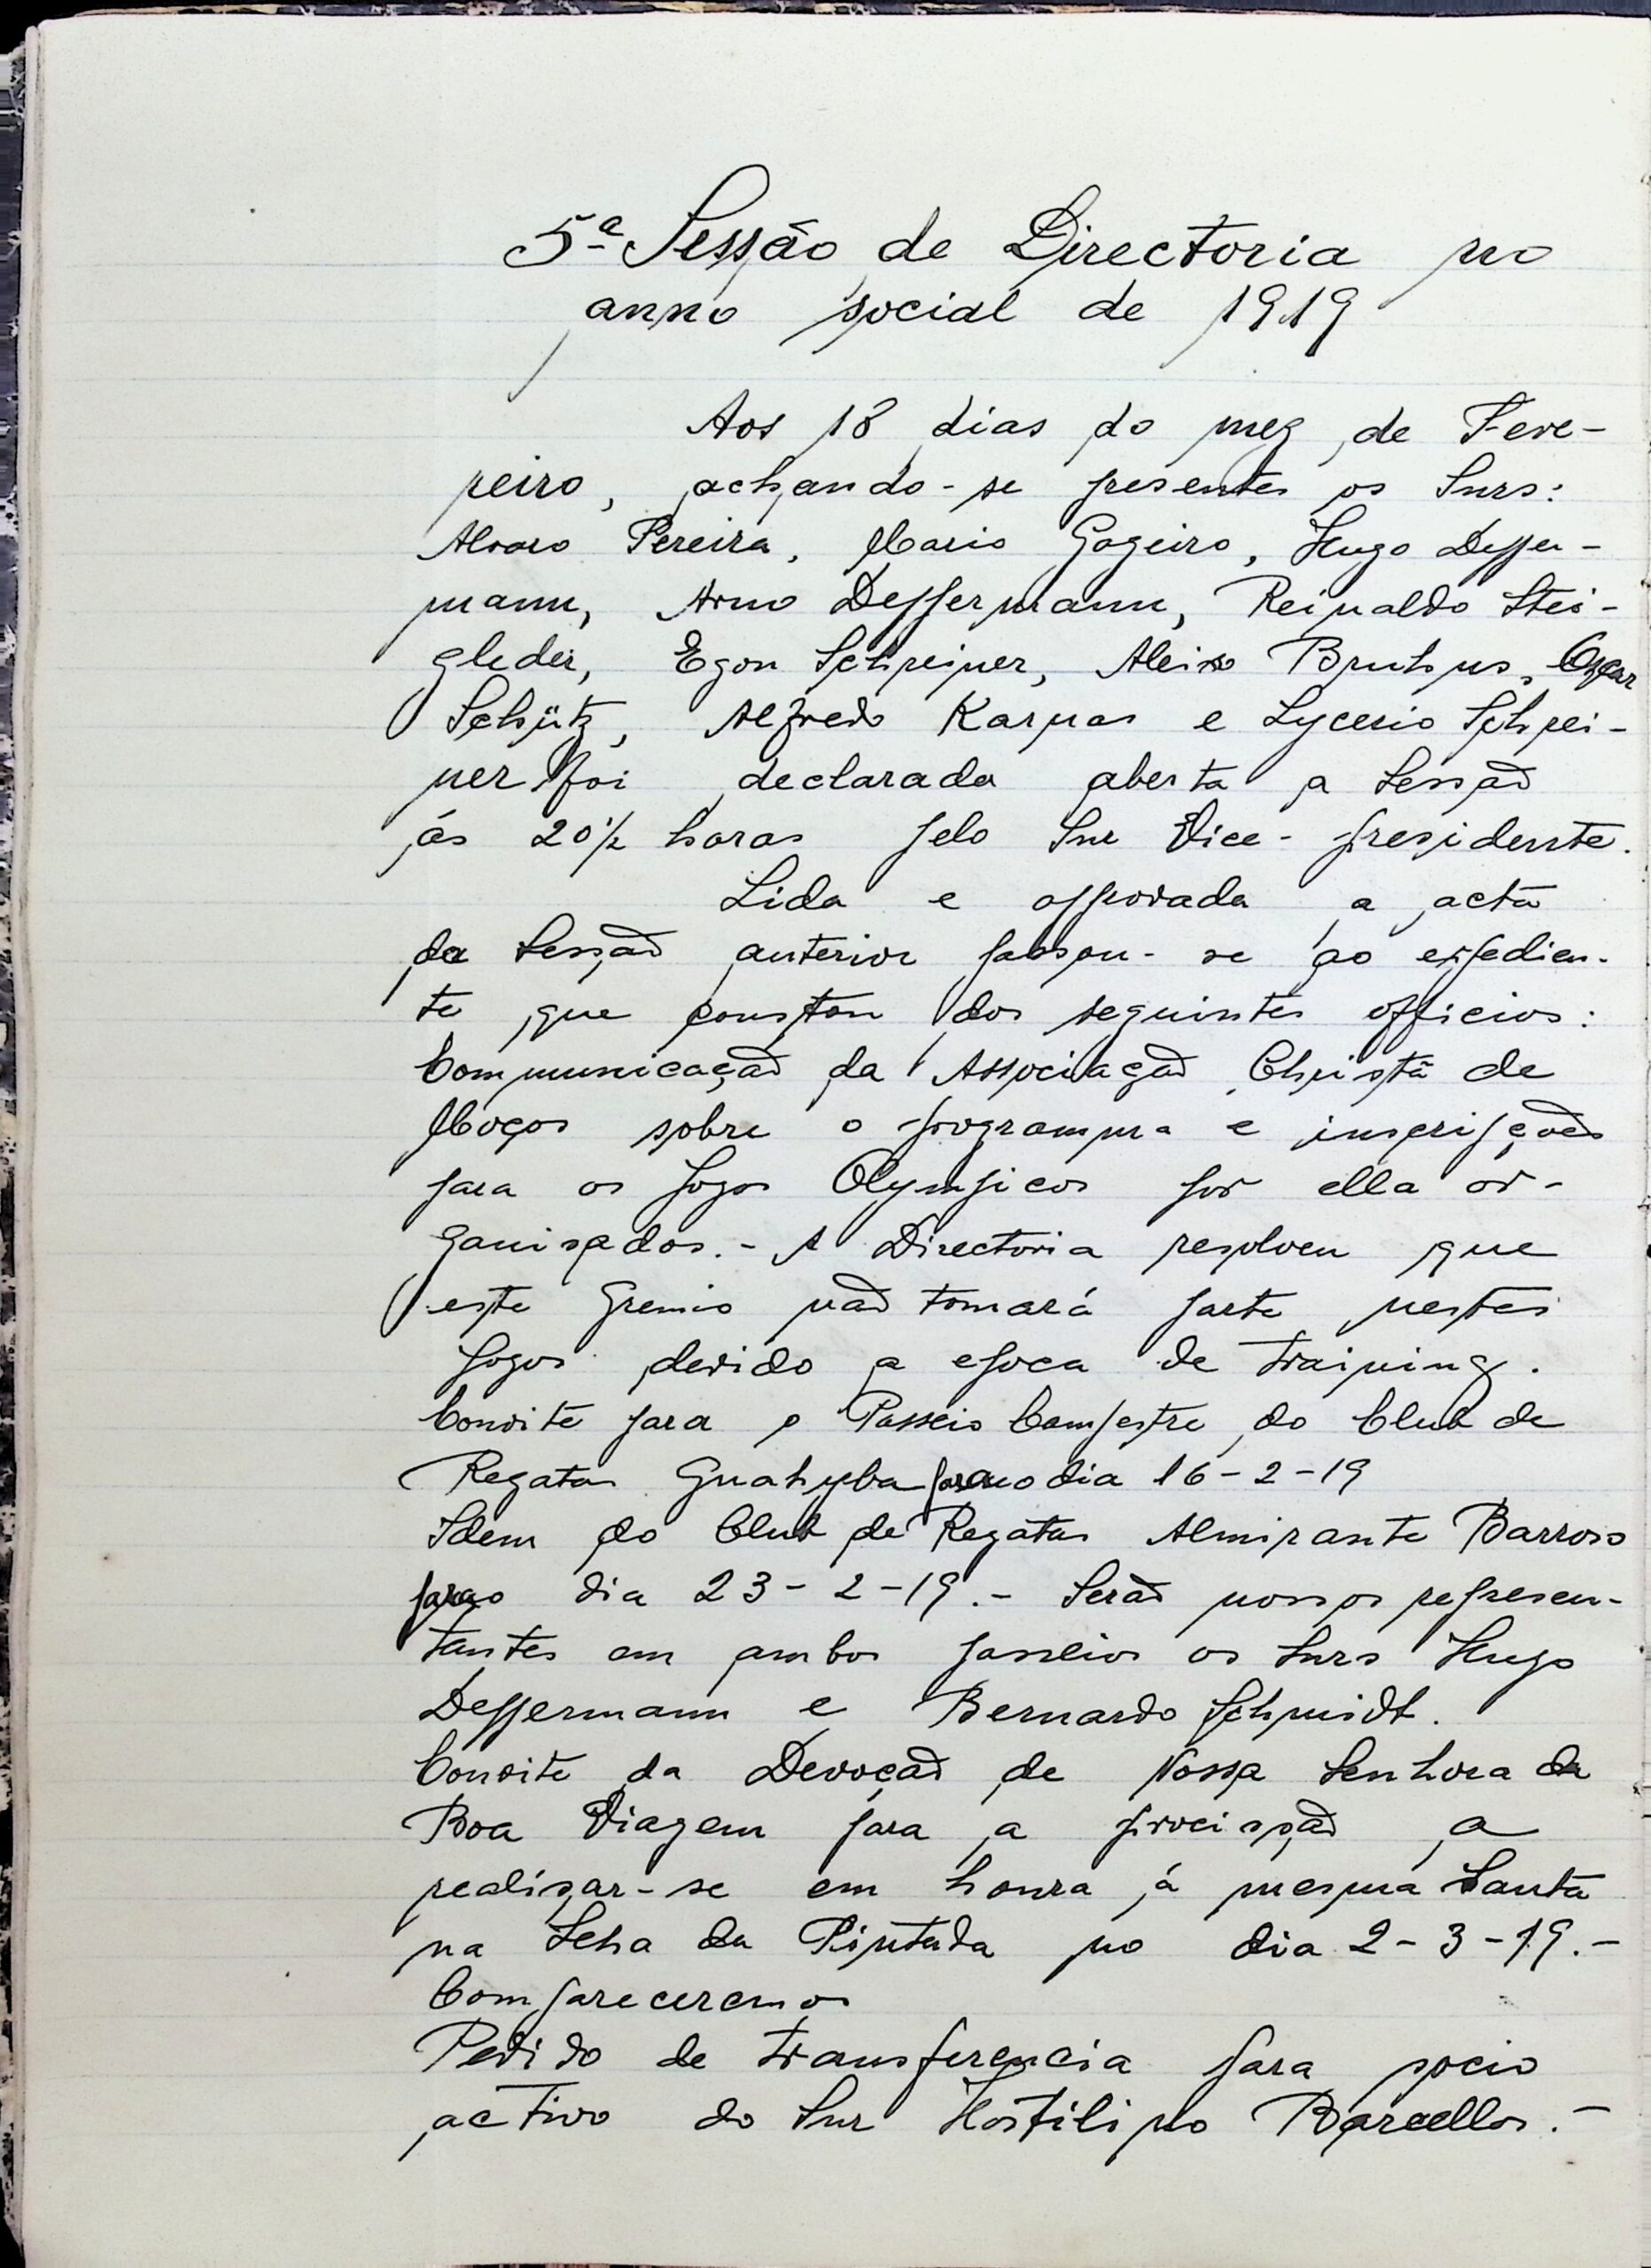 5ª Sessão de Directoria no
anno social de 1919
Aos 18 dias do mez de Feve-
reiro, achando-se presentes os Snrs:
Alvaro Pereira, Mario Gogeiro, Hugo Deppe-
mann, Arno Deppermann, Reinaldo Stei-
gleder, Egon Schreiner, Aleixo Bruhns, Oscar
Schütz, Alfredo Karnas e Lycerio Schrei-
ner foi declarada aberta a Sessão
ás 20½ horas pelo Snr Vice-presidente.
Lida e approvada a acta
da Sessão anterior passou-se ao expedien-
te que constou dos seguintes officios:
Communicação da Associação Christã de
Moços sobre o programma e inscripções
para os Jogos Olympicos por ella or-
ganisados.- A Directoria resolveu que
este Gremio não tomará parte nestes
Jogos devido a epoca de training.
Convite para o Passeio Campestre do Club de
Regatas Guahyba para o dia 16-2-19
Idem do Club de Regatas Almirante Barroso
para o dia 23-2-19.- Serão nossos represen-
tantes em ambos passeios os Snrs Hugo
Deppermann e Bernardo Schmidt.
Convite da Devoção de Nossa Senhora da
Boa Viagem para a procissão a
realisar-se em honra á mesma Santa
na Ilha da Pintada no dia 2-3-19.-
Compareceremos
Pedido de transferencia para socio
activo do Snr Hostilino Barcellos.-